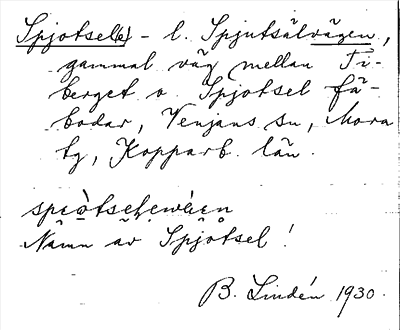 Spjotsel(e) - l. Spjutsälvägen,
gammal väg mellan Ti-
berget o. Spjotsel fä-
bodar, Venjans sn, Mora
tg, Kopparb. län.
Namn av Spjotsel!
B. Lindén 1930.